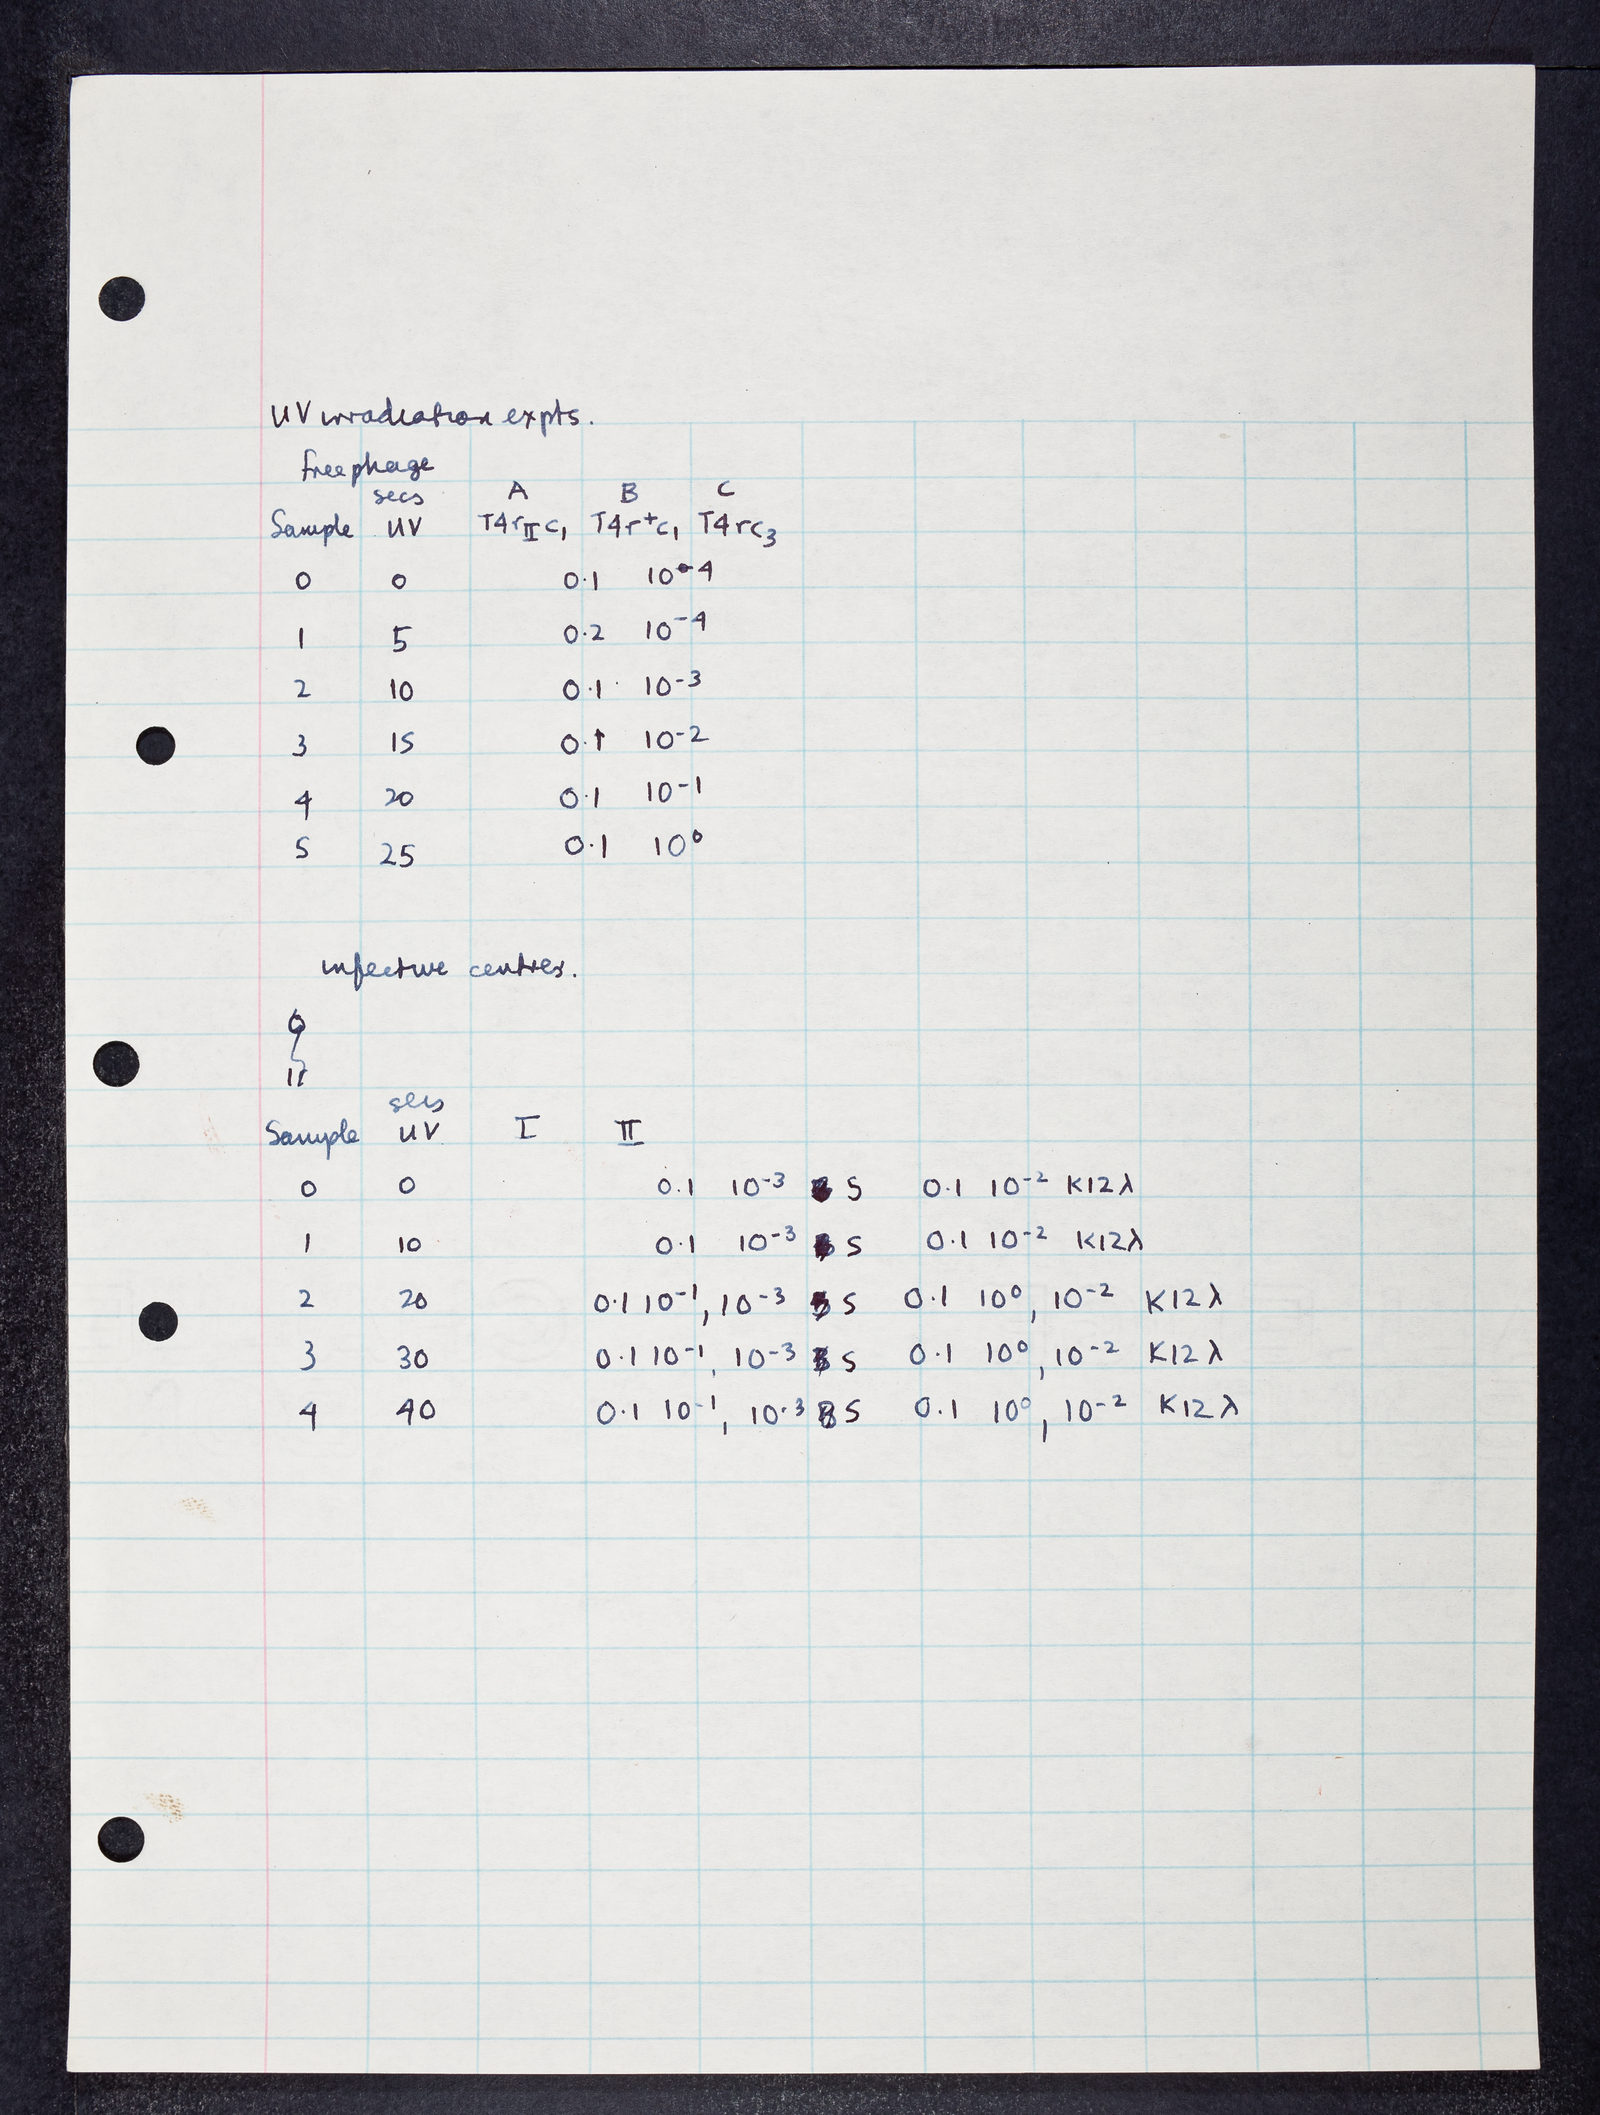 UV irradiation expts.
free phage
secs A B C
Sample UV T4rIIc, T4r⁺c, T4rc₃
0 0 0.1 10⁻⁴
1 5 0.2 10⁻⁴
2 10 0.1 10⁻³
3 15 0.1 10⁻²
4 20 0.1 10⁻¹
5 25 0.1 10⁰
infective centres.
secs
Sample UV I II
0 0 0.1 10⁻³ S 0.1 10⁻² K12λ
1 10 0.1 10⁻³ S 0.1 10⁻² K12λ
2 20 0.1 10⁻¹, 10⁻³ S 0.1 10⁰, 10⁻² K12λ
3 30 0.1 10⁻¹, 10⁻³ S 0.1 10⁰, 10⁻² K12λ
4 40 0.1 10⁻¹, 10⁻³ S 0.1 10⁰, 10⁻² K12λ